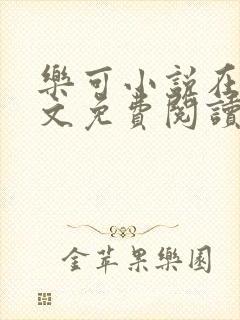 樂可小說在
文免費閱讀
金苹果樂園